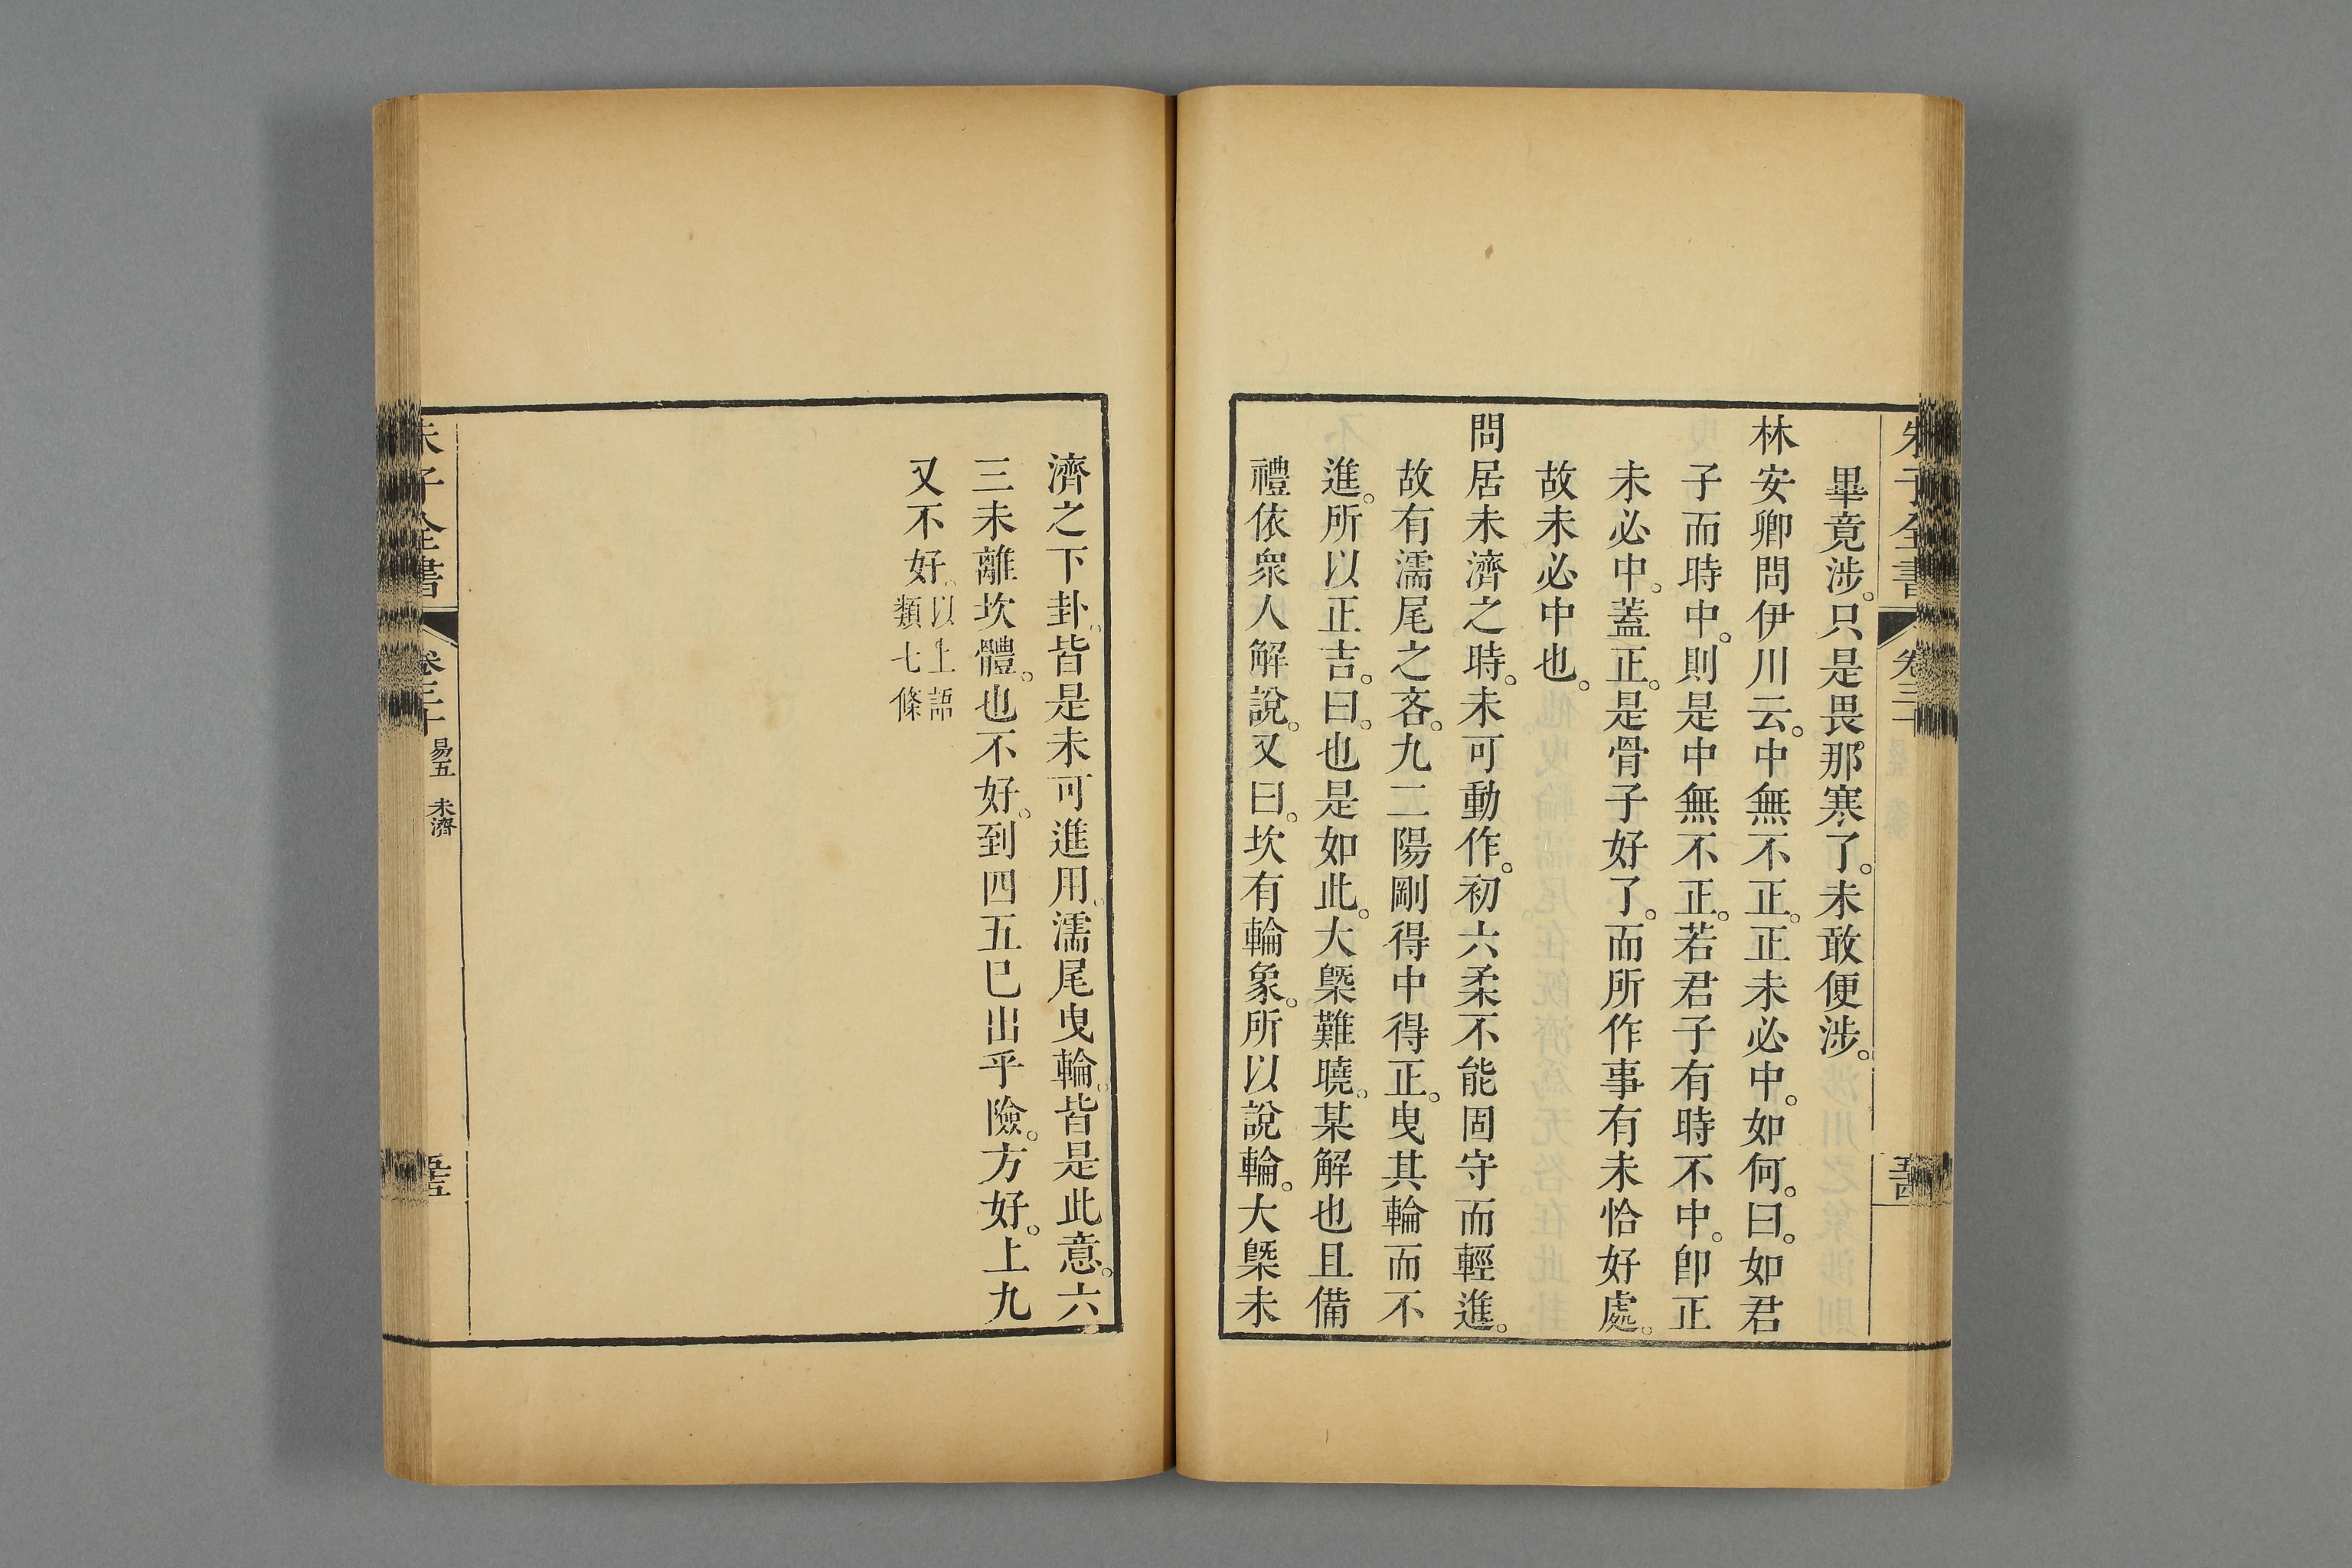 畢竟涉。只是畏那寒了。未敢便涉。
林安卿問伊川云。中無不正。正未必中。如何。曰。如君
子而時中。則是中無不正。若君子有時不中。卽正
未必中。蓋正。是骨子好了。而所作事有未恰好處。
故未必中也。
問居未濟之時。未可動作。初六柔不能固守而輕進。
故有濡尾之吝。九二陽剛得中得正。曳其輪而不
進。所以正吉。曰。也是如此。大槩難曉。某解也且備
禮依衆人解說。又曰。坎有輪象。所以說輪。大槩未
濟之下卦。皆是未可進用。濡尾曳輪。皆是此意。六。
三未離坎體。也不好。到四五已出乎險。方好。上九
又不好。以上語
類七條
朱子全書
卷三十
易五 未濟